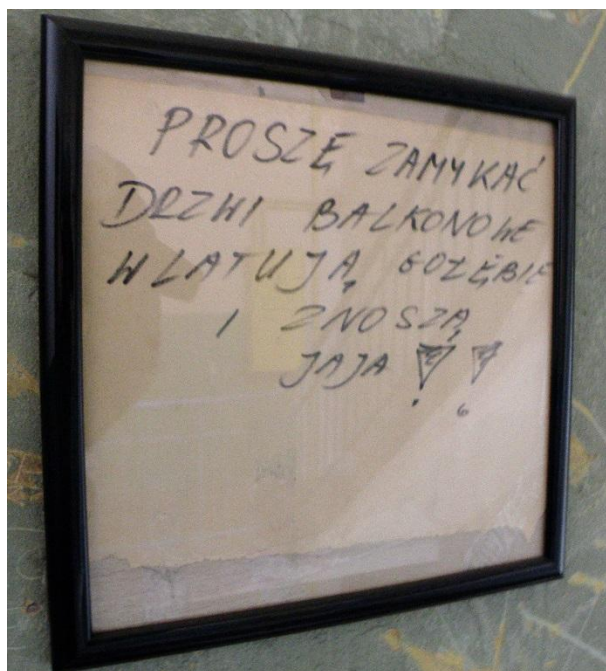 PROSZĘ ZAMYKAĆ
DRZWI BALKONOWE
WLATUJĄ GOŁĘBIE
I ZNOSZĄ
JAJA !!